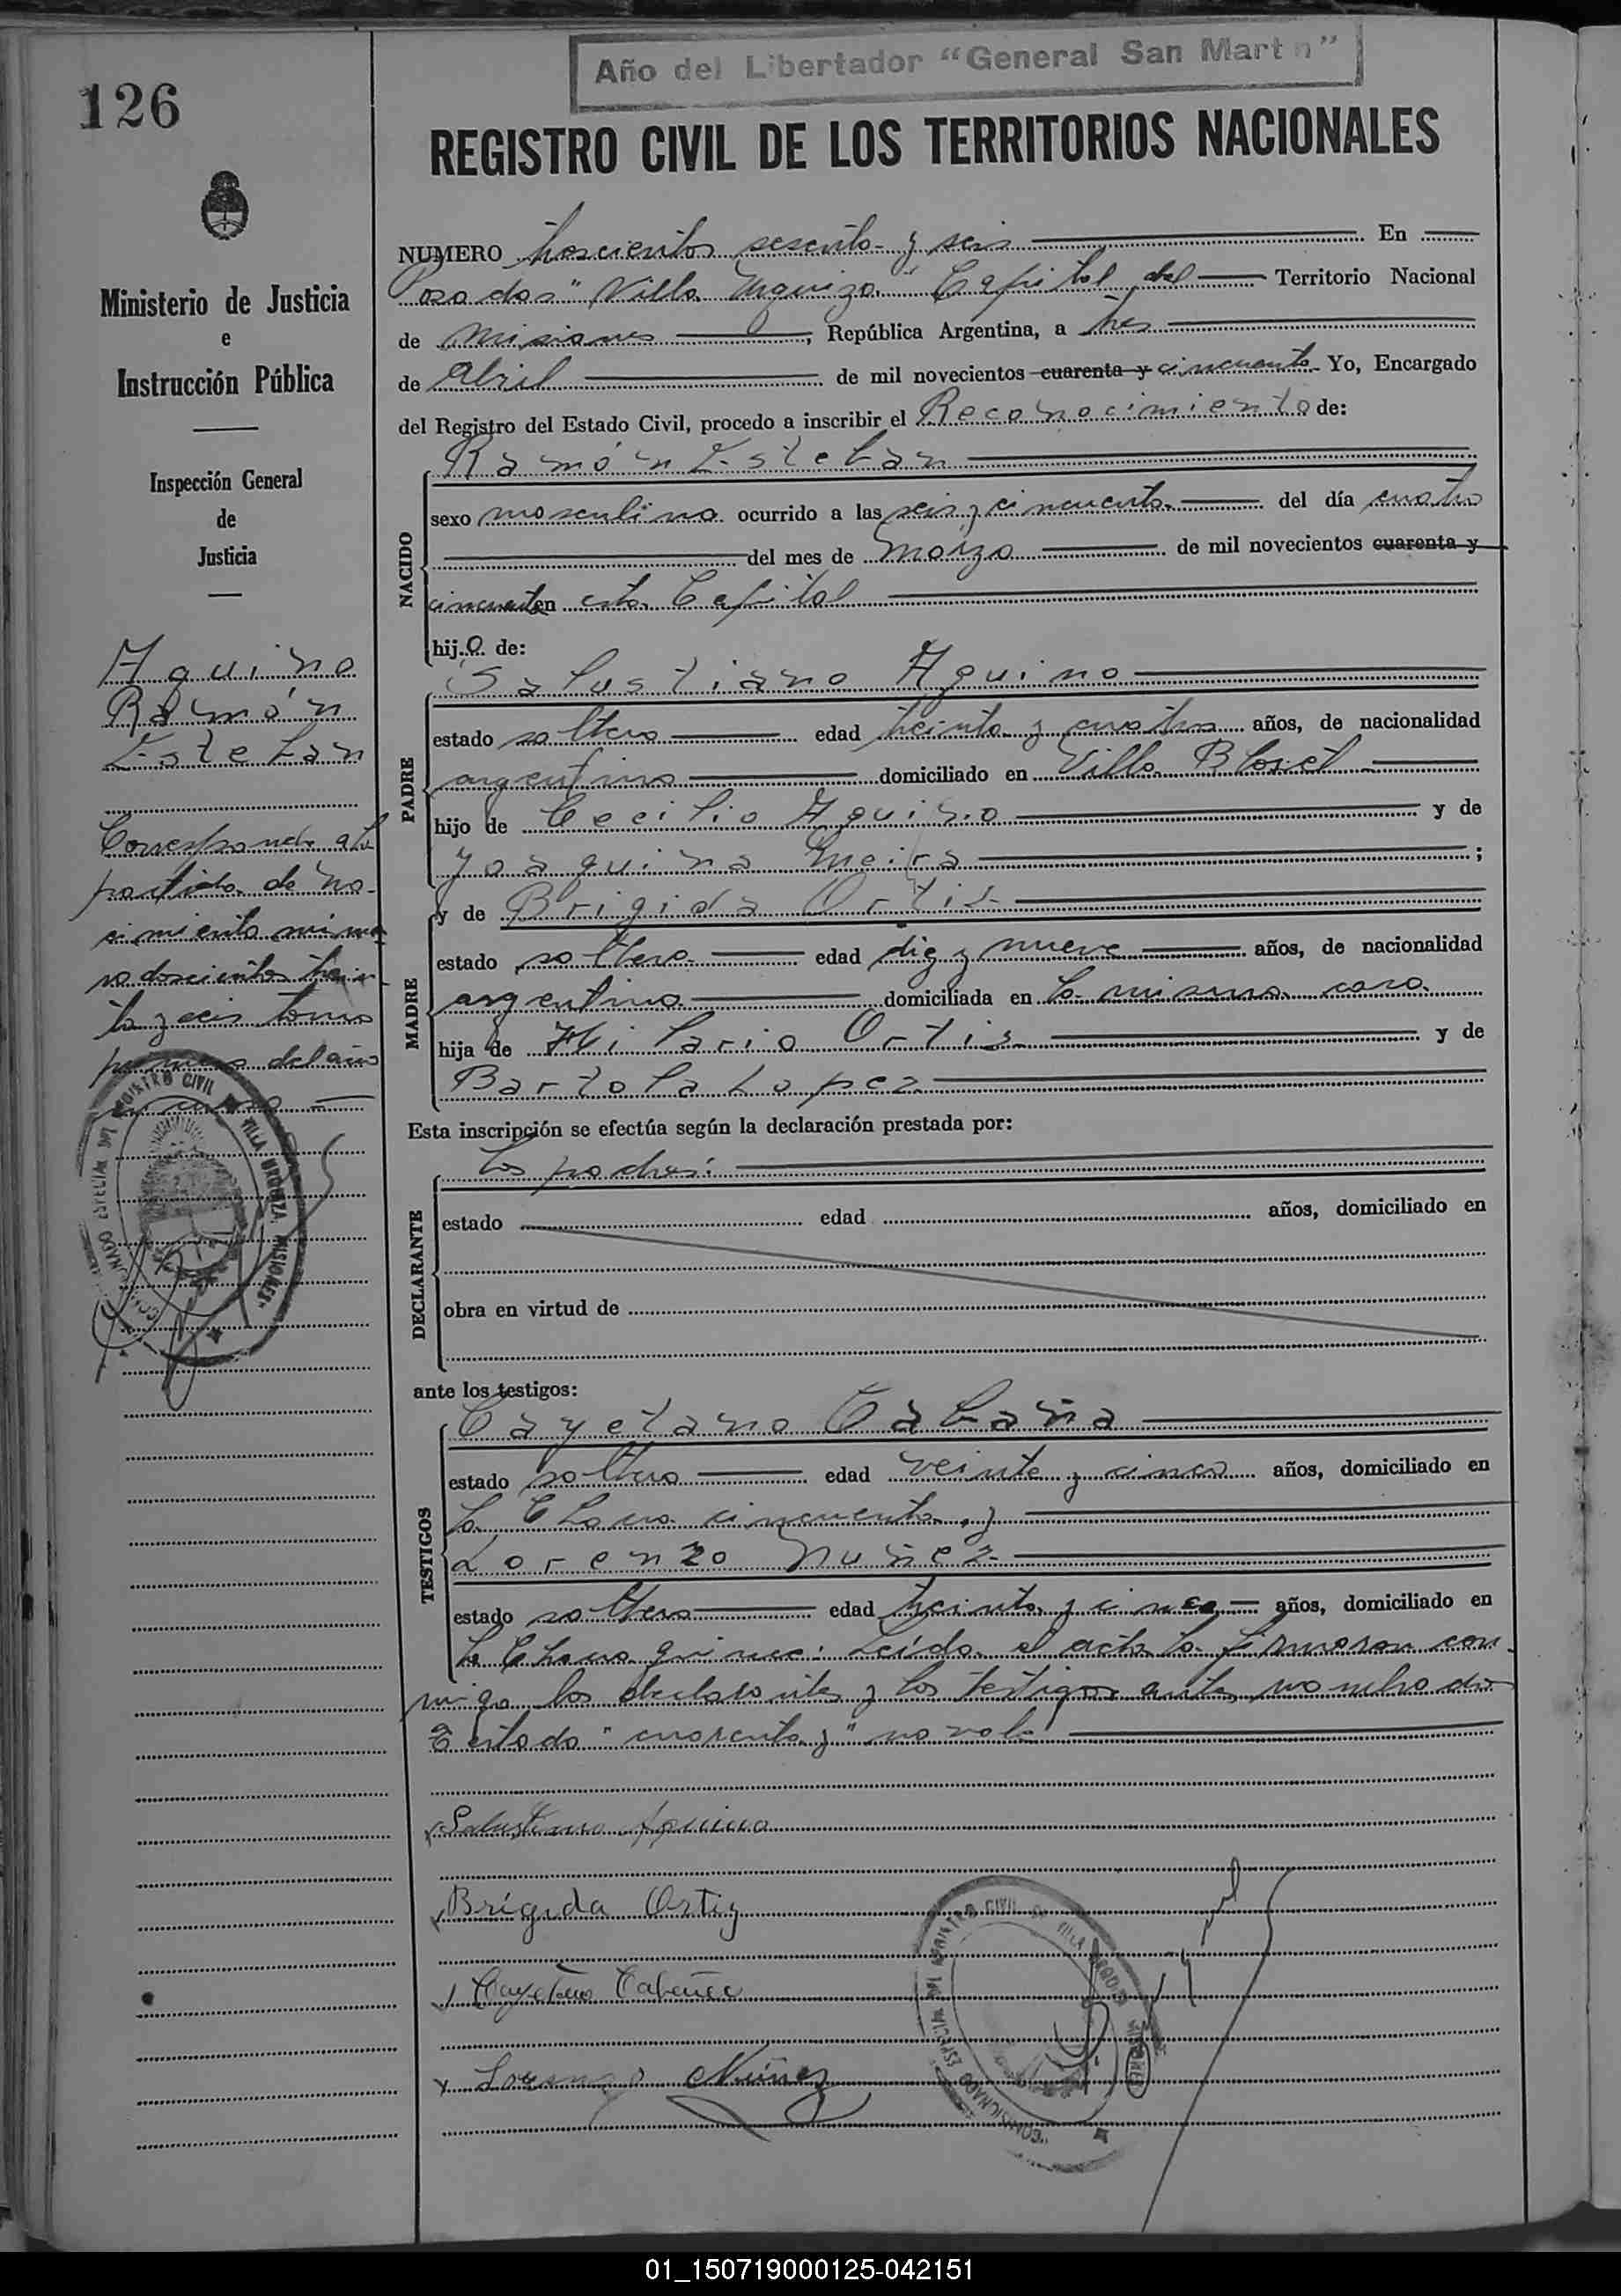 Año del Libertador “General San Martin”
126
REGISTRO CIVIL DE LOS TERRITORIOS NACIONALES
Ministerio de Justicia
e
Instrucción Pública
Inspección General
de
Justicia
Aquino
Ramón
Esteban
Corresponde a la
partida de na-
cimiento núme
ro doscientos trein
ta y seis tomo
primero del año
en curso
NUMERO trescientos sesenta y seis En
Posadas "Villa Urquiza" Capital del Territorio Nacional
de Misiones, República Argentina, a tres
de Abril de mil novecientos cuarenta y cincuenta Yo, Encargado
del Registro del Estado Civil, procedo a inscribir el Reconocimiento de:
NACIDO
Ramón Esteban
sexo masculino ocurrido a las seis y cincuenta del día cuatro
del mes de Marzo de mil novecientos cuarenta y
cincuenta en esta Capital
hijo de:
PADRE
Salustiano Aquino
estado soltero edad treinta y cuatro años, de nacionalidad
argentino domiciliado en Villa Blosset
hijo de Cecilio Aquino y de
Joaquina Meira;
MADRE
y de Brigida Ortiz
estado soltera edad diez y nueve años, de nacionalidad
argentina domiciliada en la misma casa
hija de Hilario Ortiz y de
Bartola Lopez
Esta inscripción se efectúa según la declaración prestada por:
DECLARANTE
los padres:
estado edad años, domiciliado en
obra en virtud de
ante los testigos:
TESTIGOS
Cayetano Cabaña
estado soltero edad veinte y cinco años, domiciliado en
la Chacra cincuenta, y
Lorenzo Nuñez
estado soltero edad treinta y cinco años, domiciliado en
la Chacra quince: Leída el acta la firmaron con-
migo los declarantes y los testigos antes nombrados
Testado "cuarenta y" no vale
Salustiano Aquino
Brígida Ortiz
Cayetano Cabaña
Lorenzo Núñez
COMISIONADO ESPECIAL DEL REGISTRO CIVIL VILLA URQUIZA MISIONES
COMISIONADO ESPECIAL DEL REGISTRO CIVIL VILLA URQUIZA MISIONES
01_150719000125-042151